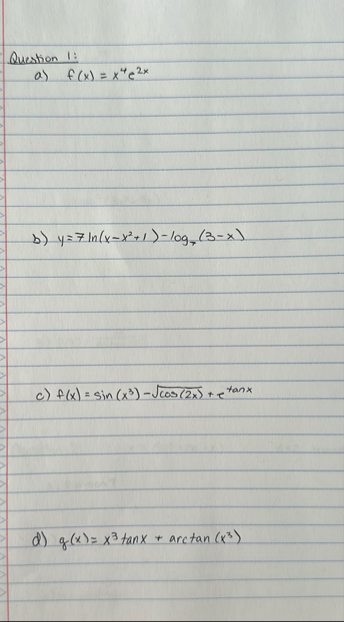 Question 1:
a) f(x) = x⁴e²ˣ
b) y=7 ln(x-x²+1)-log₇(3-x)
c) f(x) = sin(x³)-√cos(2x) + e^tanx
d) g(x)= x³ tanx + arctan(x³)